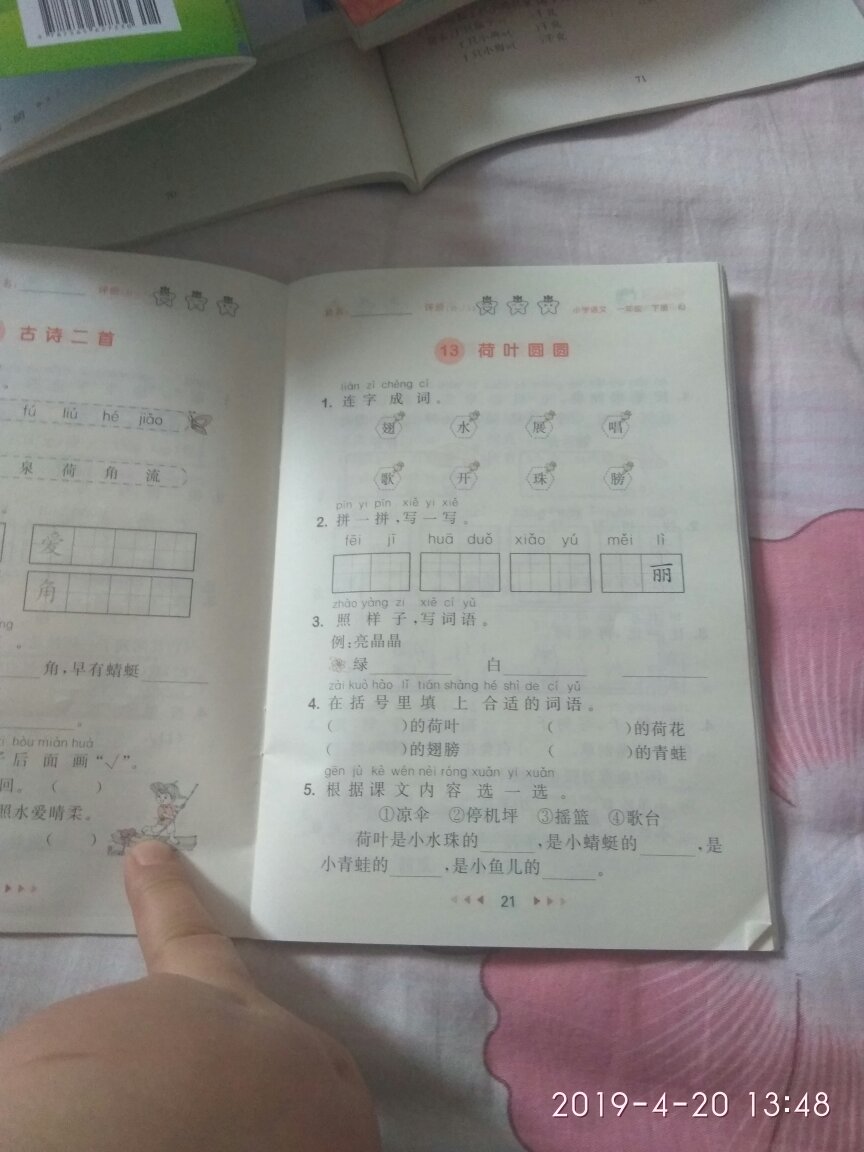 古诗二首
fú liú hé jiǎo
泉 荷 角 流
爱
角
角，早有蜻蜓
hòu miàn huà
后面画“√”。
( )
照水爱晴柔。
( )
小学语文 一年级 下册 RJ
13 荷叶圆圆
lián zì chéng cí
1. 连字成词。
翅 水 展 唱
歌 开 珠 膀
pīn yi pīn xiě yi xiě
2. 拼一拼，写一写。
fēi jī huā duǒ xiǎo yú měi lì
丽
zhào yàng zi xiě cí yǔ
3. 照样子，写词语。
例：亮晶晶
绿______ 白______
zài kuò hào lǐ tián shàng hé shì de cí yǔ
4. 在括号里填上合适的词语。
( )的荷叶 ( )的荷花
( )的翅膀 ( )的青蛙
gēn jù kè wén nèi róng xuǎn yi xuǎn
5. 根据课文内容选一选。
①凉伞 ②停机坪 ③摇篮 ④歌台
荷叶是小水珠的______，是小蜻蜓的______，是
小青蛙的______，是小鱼儿的______。
21
2019-4-20 13:48